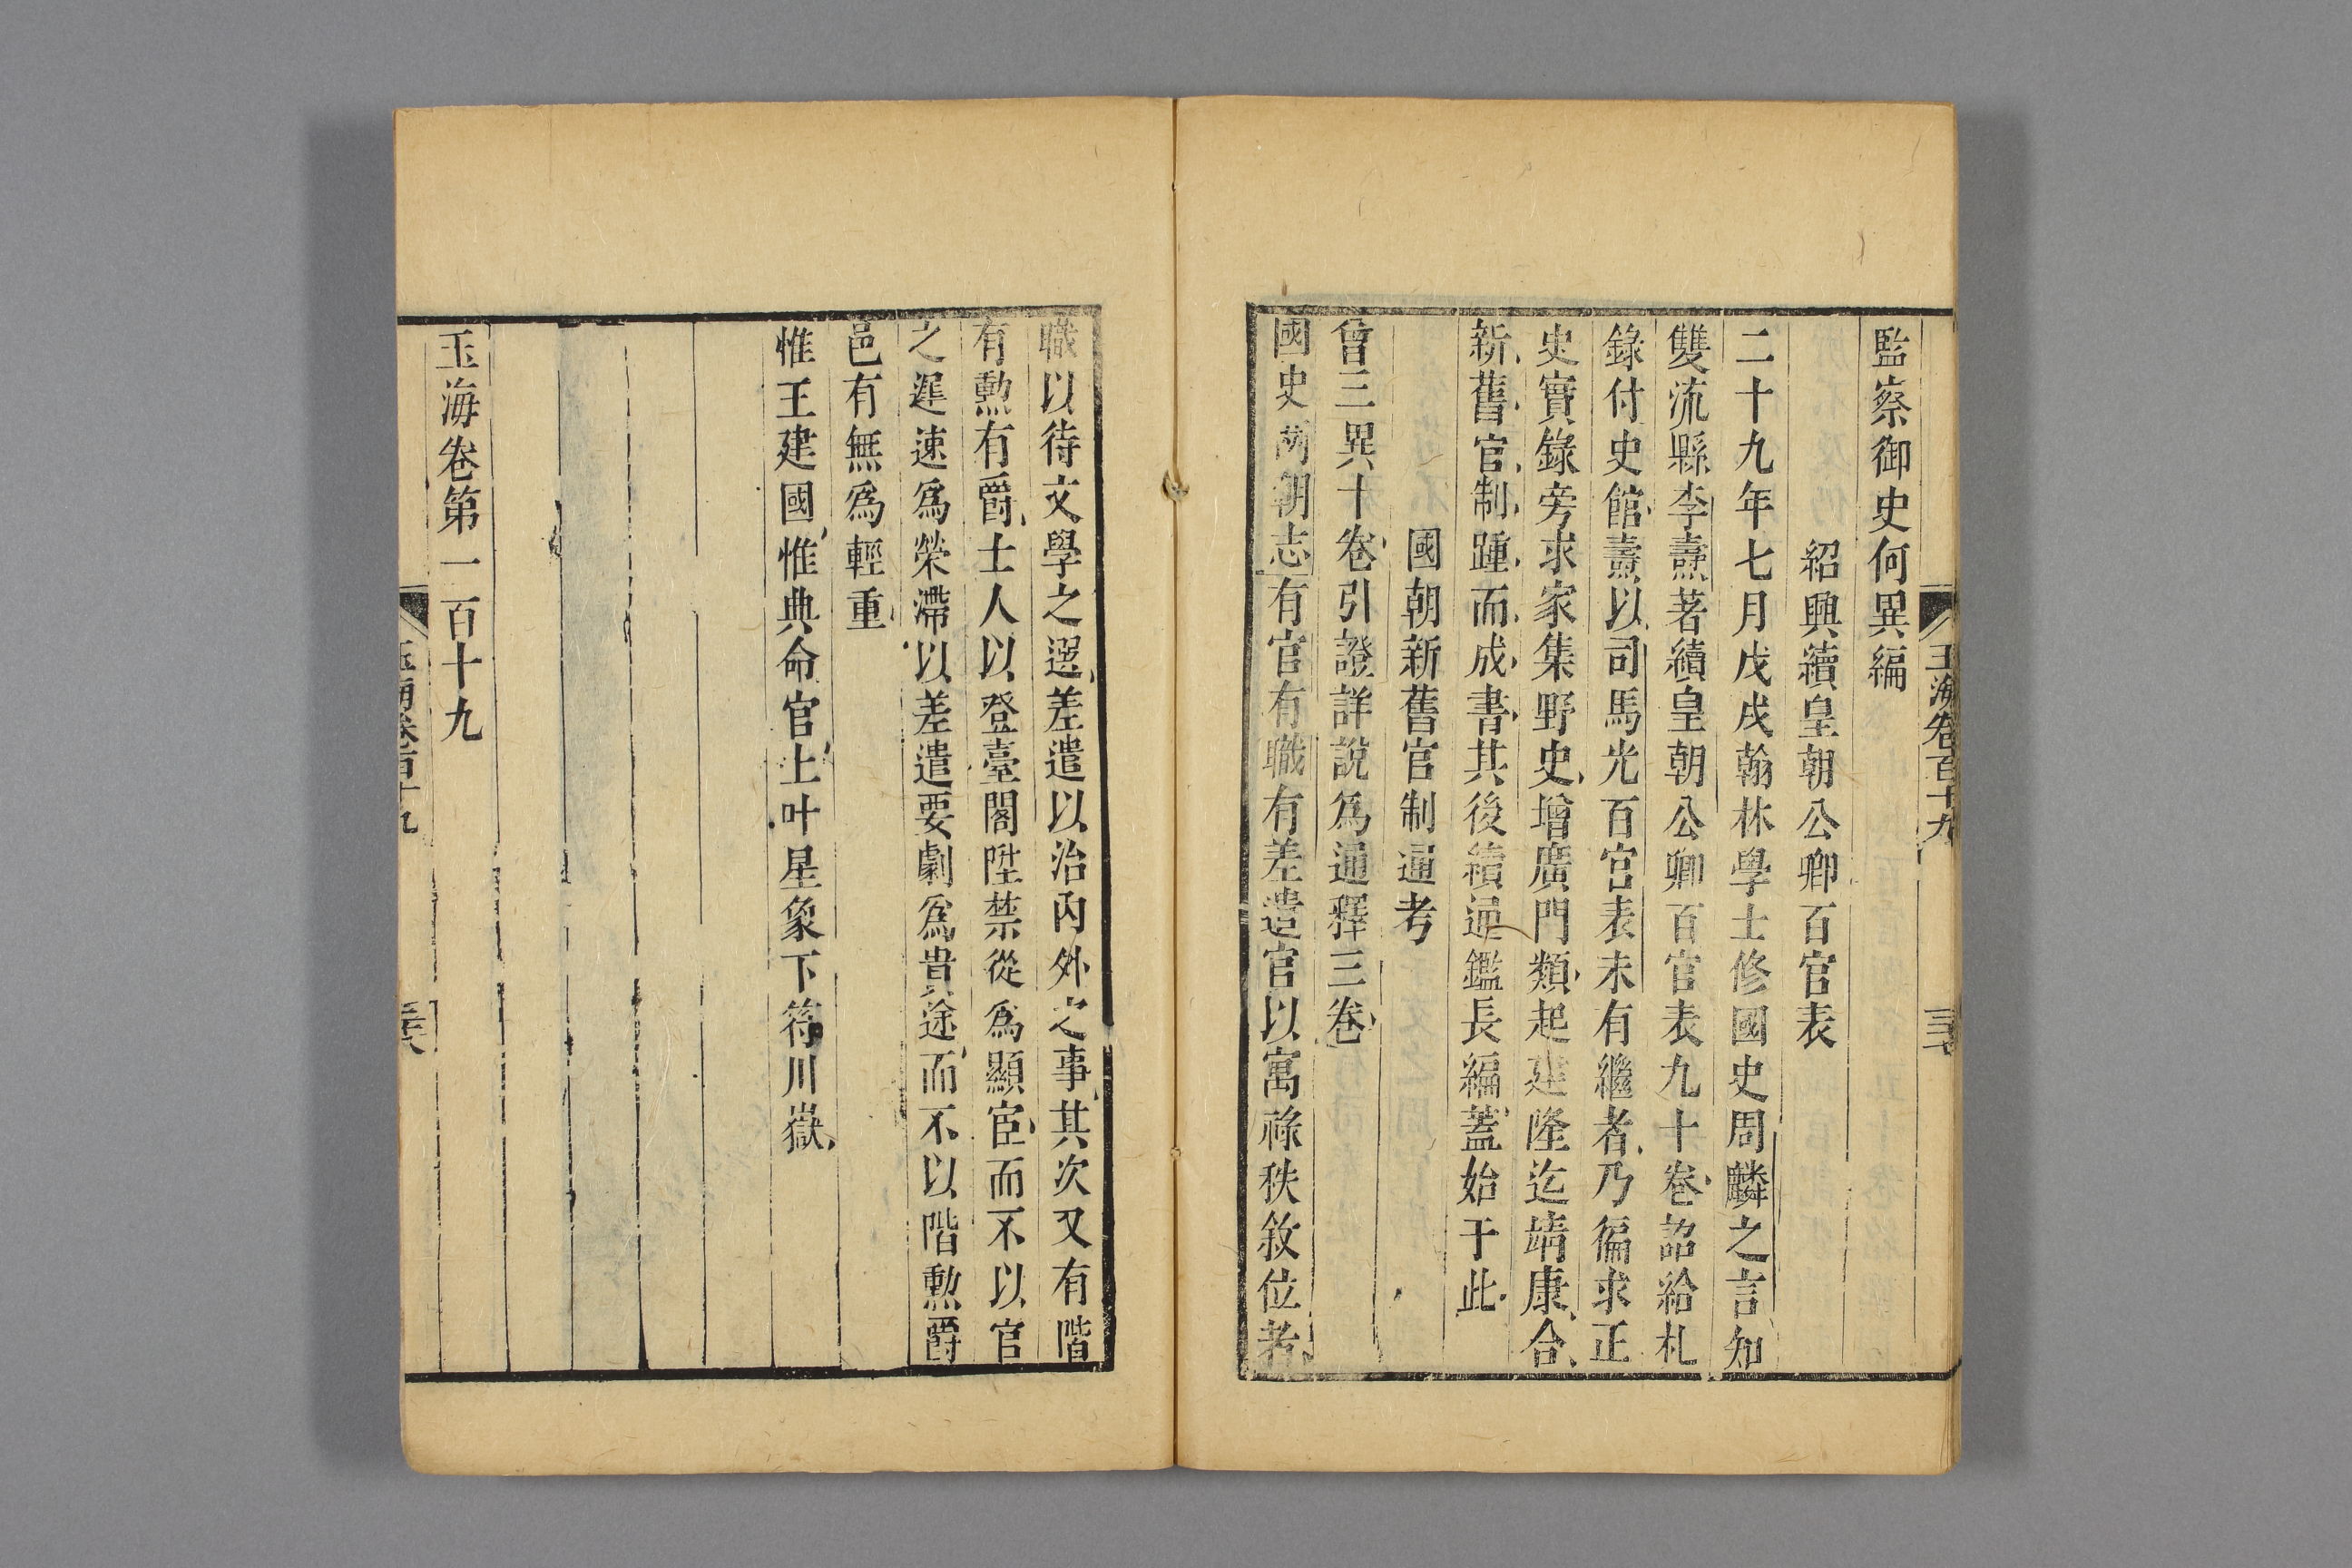 玉海卷百十九
三十七
監察御史何異編
紹興續皇朝公卿百官表
二十九年七月戊戌翰林學士修國史周麟之言知
雙流縣李燾著續皇朝公卿百官表九十卷詔給札
錄付史館燾以司馬光百官表未有繼者乃徧求正
史實錄旁求家集野史增廣門類起建隆迄靖康合
新舊官制踵而成書其後續通鑑長編蓋始于此
國朝新舊官制通考
曾三異十卷引證詳說爲通釋三卷
國史兩朝志有官有職有差遣官以寓祿秩敘位者
職以待文學之選差遣以治內外之事其次又有階
有勲有爵士人以登臺閣陞禁從爲顯宦而不以官
之遲速爲榮滯以差遣要劇爲貴途而不以階勲爵
邑有無爲輕重
惟王建國惟典命官上叶星象下符川嶽
玉海卷第一百十九
玉海卷百十九
三十八